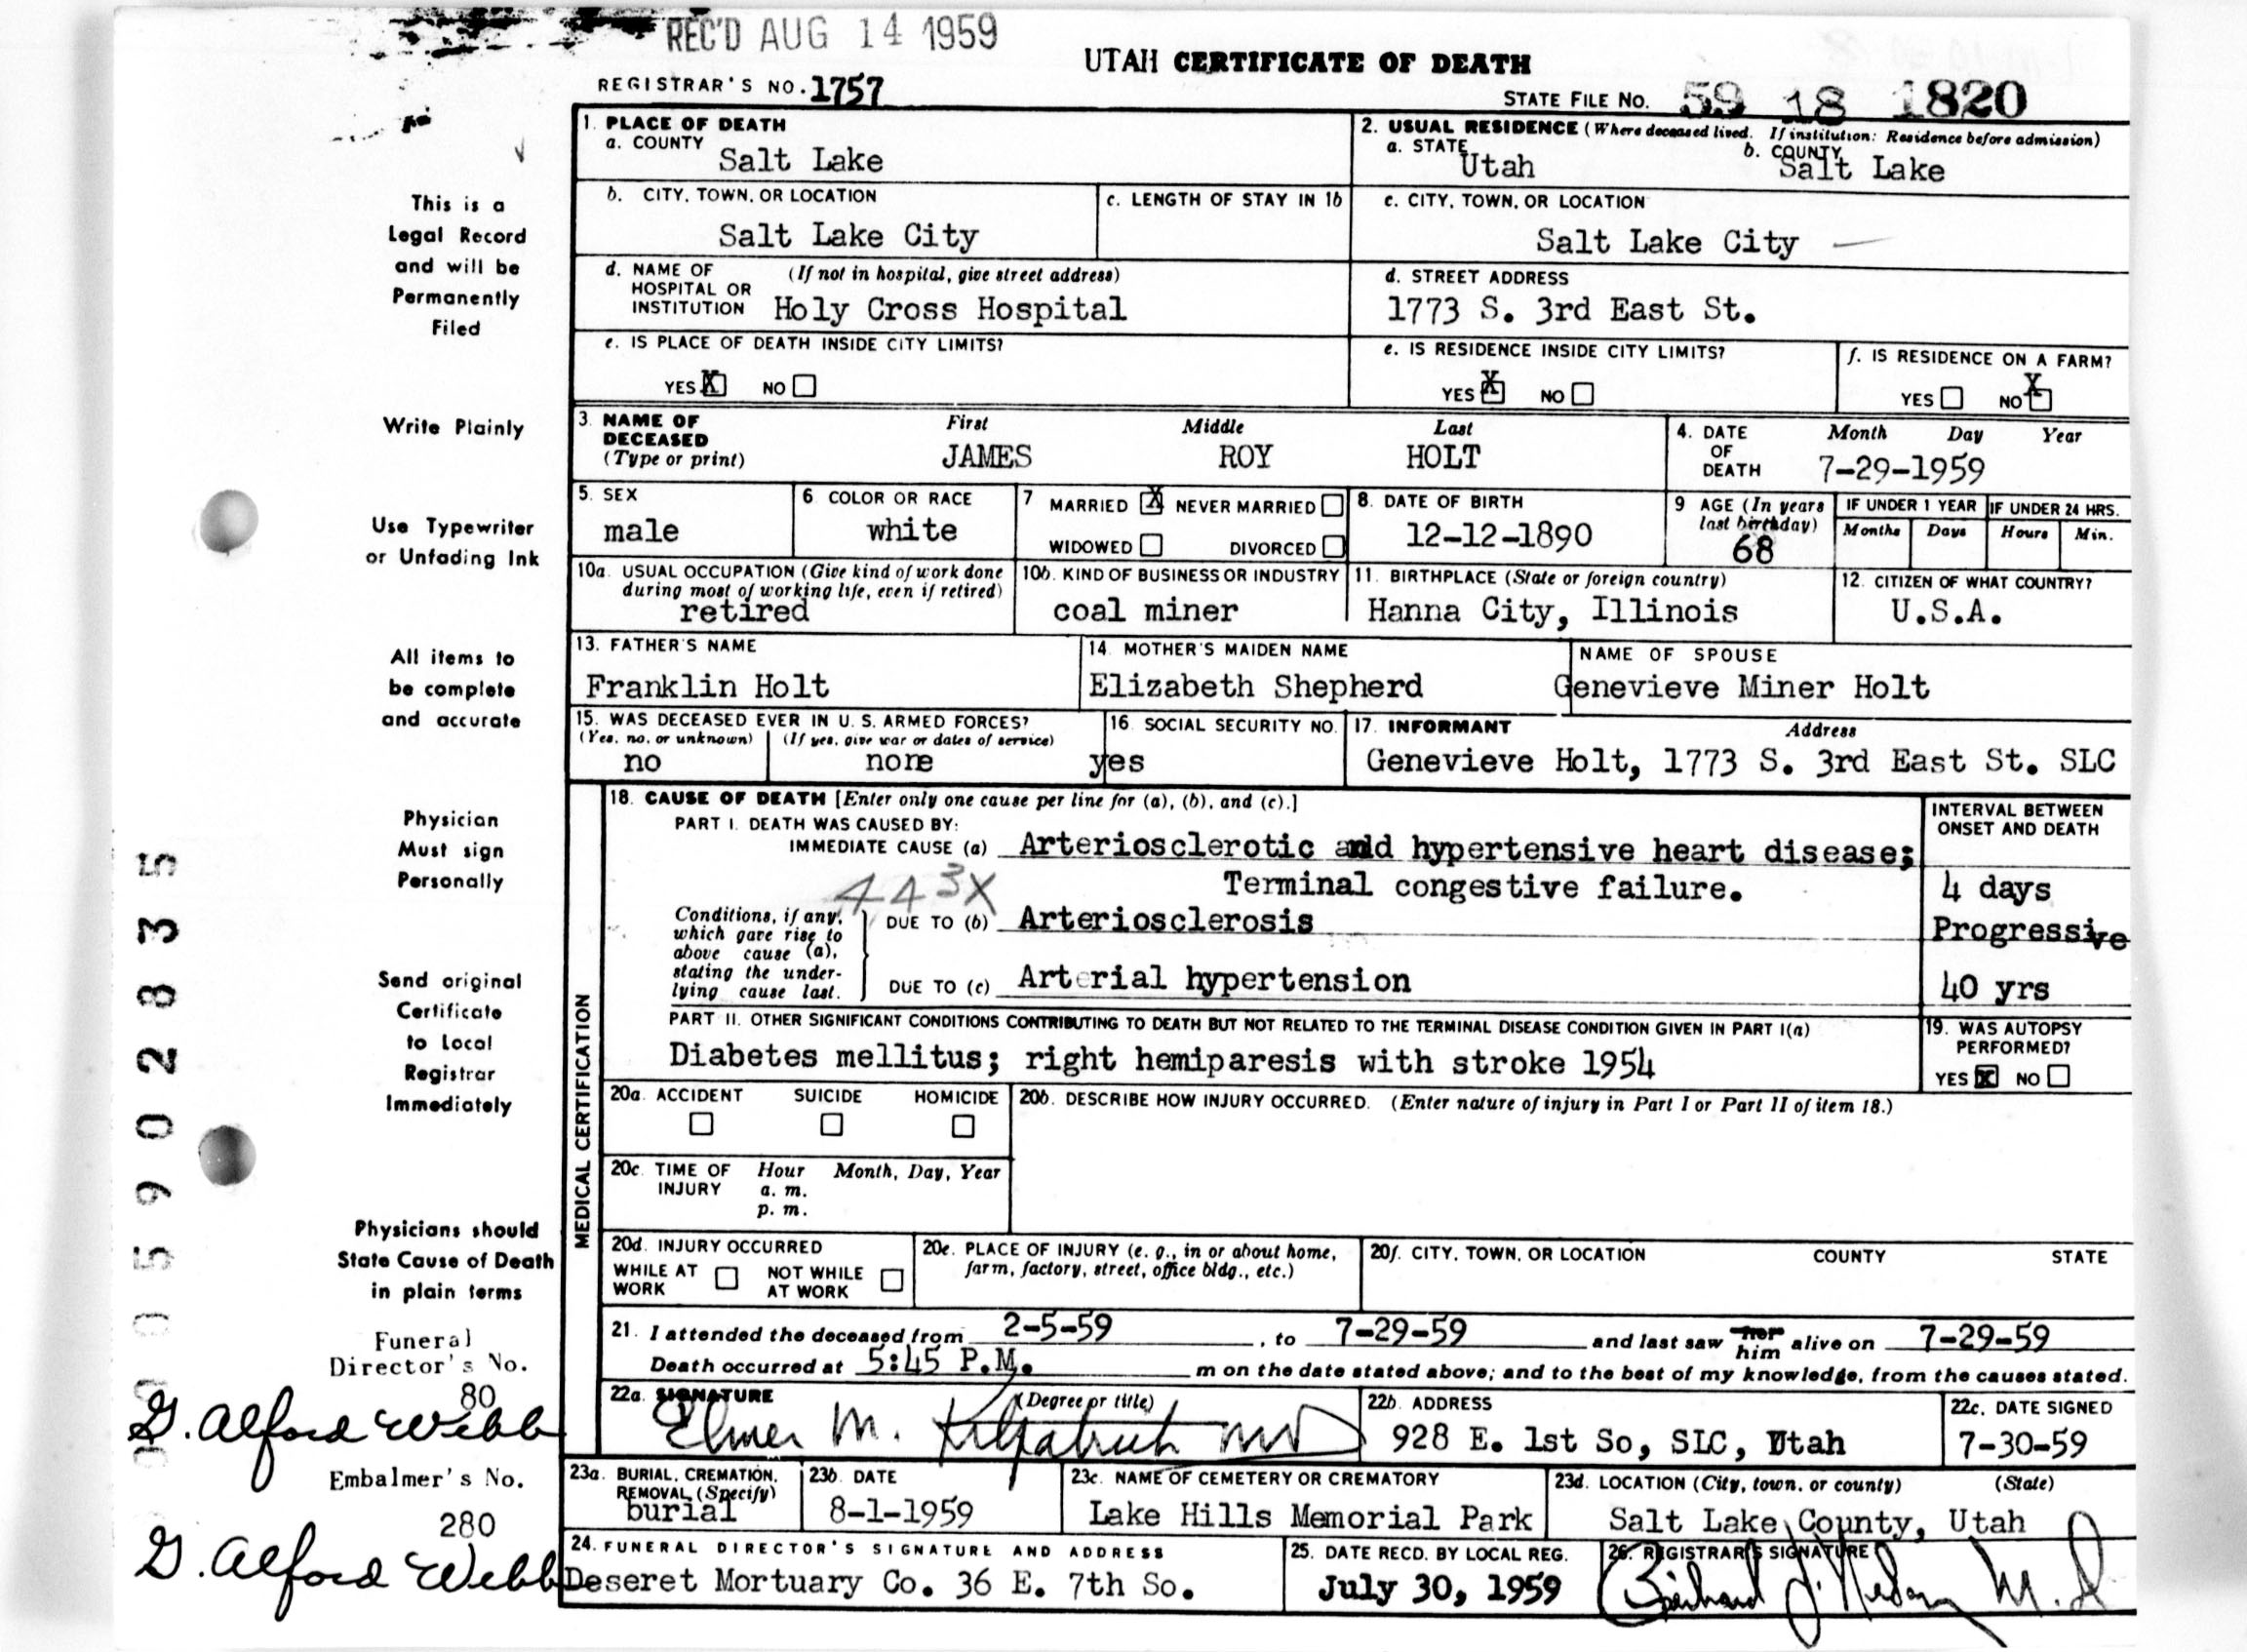 REC'D AUG 14 1959
UTAH CERTIFICATE OF DEATH
REGISTRAR'S NO. 1757
STATE FILE NO. 59 18 1820
1. PLACE OF DEATH
a. COUNTY Salt Lake
2. USUAL RESIDENCE (Where deceased lived. If institution: Residence before admission)
a. STATE Utah b. COUNTY Salt Lake
b. CITY, TOWN, OR LOCATION
Salt Lake City
c. LENGTH OF STAY IN 1b
c. CITY, TOWN, OR LOCATION
Salt Lake City
d. NAME OF HOSPITAL OR INSTITUTION (If not in hospital, give street address)
Holy Cross Hospital
d. STREET ADDRESS
1773 S. 3rd East St.
e. IS PLACE OF DEATH INSIDE CITY LIMITS?
YES X NO
e. IS RESIDENCE INSIDE CITY LIMITS?
YES X NO
f. IS RESIDENCE ON A FARM?
YES NO X
3. NAME OF DECEASED (Type or print)
First Middle Last
JAMES ROY HOLT
4. DATE OF DEATH Month Day Year
7-29-1959
5. SEX
male
6 COLOR OR RACE
white
7 MARRIED X NEVER MARRIED
WIDOWED DIVORCED
8. DATE OF BIRTH
12-12-1890
9 AGE (In years last birthday)
68
IF UNDER 1 YEAR
Months Days
IF UNDER 24 HRS.
Hours Min.
10a. USUAL OCCUPATION (Give kind of work done
during most of working life, even if retired)
retired
10b. KIND OF BUSINESS OR INDUSTRY
coal miner
11. BIRTHPLACE (State or foreign country)
Hanna City, Illinois
12. CITIZEN OF WHAT COUNTRY?
U.S.A.
13. FATHER'S NAME
Franklin Holt
14. MOTHER'S MAIDEN NAME
Elizabeth Shepherd
NAME OF SPOUSE
Genevieve Miner Holt
15. WAS DECEASED EVER IN U. S. ARMED FORCES?
(Yes, no, or unknown) (If yes, give war or dates of service)
no none
16. SOCIAL SECURITY NO.
yes
17. INFORMANT Address
Genevieve Holt, 1773 S. 3rd East St. SLC
MEDICAL CERTIFICATION
18. CAUSE OF DEATH [Enter only one cause per line for (a), (b), and (c).]
INTERVAL BETWEEN
ONSET AND DEATH
PART I. DEATH WAS CAUSED BY:
IMMEDIATE CAUSE (a) Arteriosclerotic and hypertensive heart disease;
443X
Terminal congestive failure.
4 days
Conditions, if any,
which gave rise to
above cause (a),
stating the under-
lying cause last.
DUE TO (b) Arteriosclerosis
Progressive
DUE TO (c) Arterial hypertension
40 yrs
PART II. OTHER SIGNIFICANT CONDITIONS CONTRIBUTING TO DEATH BUT NOT RELATED TO THE TERMINAL DISEASE CONDITION GIVEN IN PART I(a)
Diabetes mellitus; right hemiparesis with stroke 1954
19. WAS AUTOPSY
PERFORMED?
YES X NO
20a. ACCIDENT SUICIDE HOMICIDE
20b. DESCRIBE HOW INJURY OCCURRED. (Enter nature of injury in Part I or Part II of item 18.)
20c. TIME OF INJURY Hour Month, Day, Year
a. m.
p. m.
20d. INJURY OCCURRED
WHILE AT WORK NOT WHILE AT WORK
20e. PLACE OF INJURY (e. g., in or about home,
farm, factory, street, office bldg., etc.)
20f. CITY, TOWN, OR LOCATION COUNTY STATE
21. I attended the deceased from 2-5-59, to 7-29-59 and last saw her him alive on 7-29-59
Death occurred at 5:45 P.M. m on the date stated above; and to the best of my knowledge, from the causes stated.
22a. SIGNATURE (Degree or title)
Elmer M. Kilpatrick MD
22b. ADDRESS
928 E. 1st So, SLC, Utah
22c. DATE SIGNED
7-30-59
23a. BURIAL, CREMATION,
REMOVAL (Specify)
burial
23b. DATE
8-1-1959
23c. NAME OF CEMETERY OR CREMATORY
Lake Hills Memorial Park
23d. LOCATION (City, town, or county) (State)
Salt Lake County, Utah
24. FUNERAL DIRECTOR'S SIGNATURE AND ADDRESS
Deseret Mortuary Co. 36 E. 7th So.
25. DATE RECD. BY LOCAL REG.
July 30, 1959
26. REGISTRAR'S SIGNATURE
M.D
This is a
Legal Record
and will be
Permanently
Filed
Write Plainly
Use Typewriter
or Unfading Ink
All items to
be complete
and accurate
Physician
Must sign
Personally
Send original
Certificate
to Local
Registrar
Immediately
Physicians should
State Cause of Death
in plain terms
Funeral
Director's No.
80
G. Alford Webb
Embalmer's No.
280
G. Alford Webb
005902835